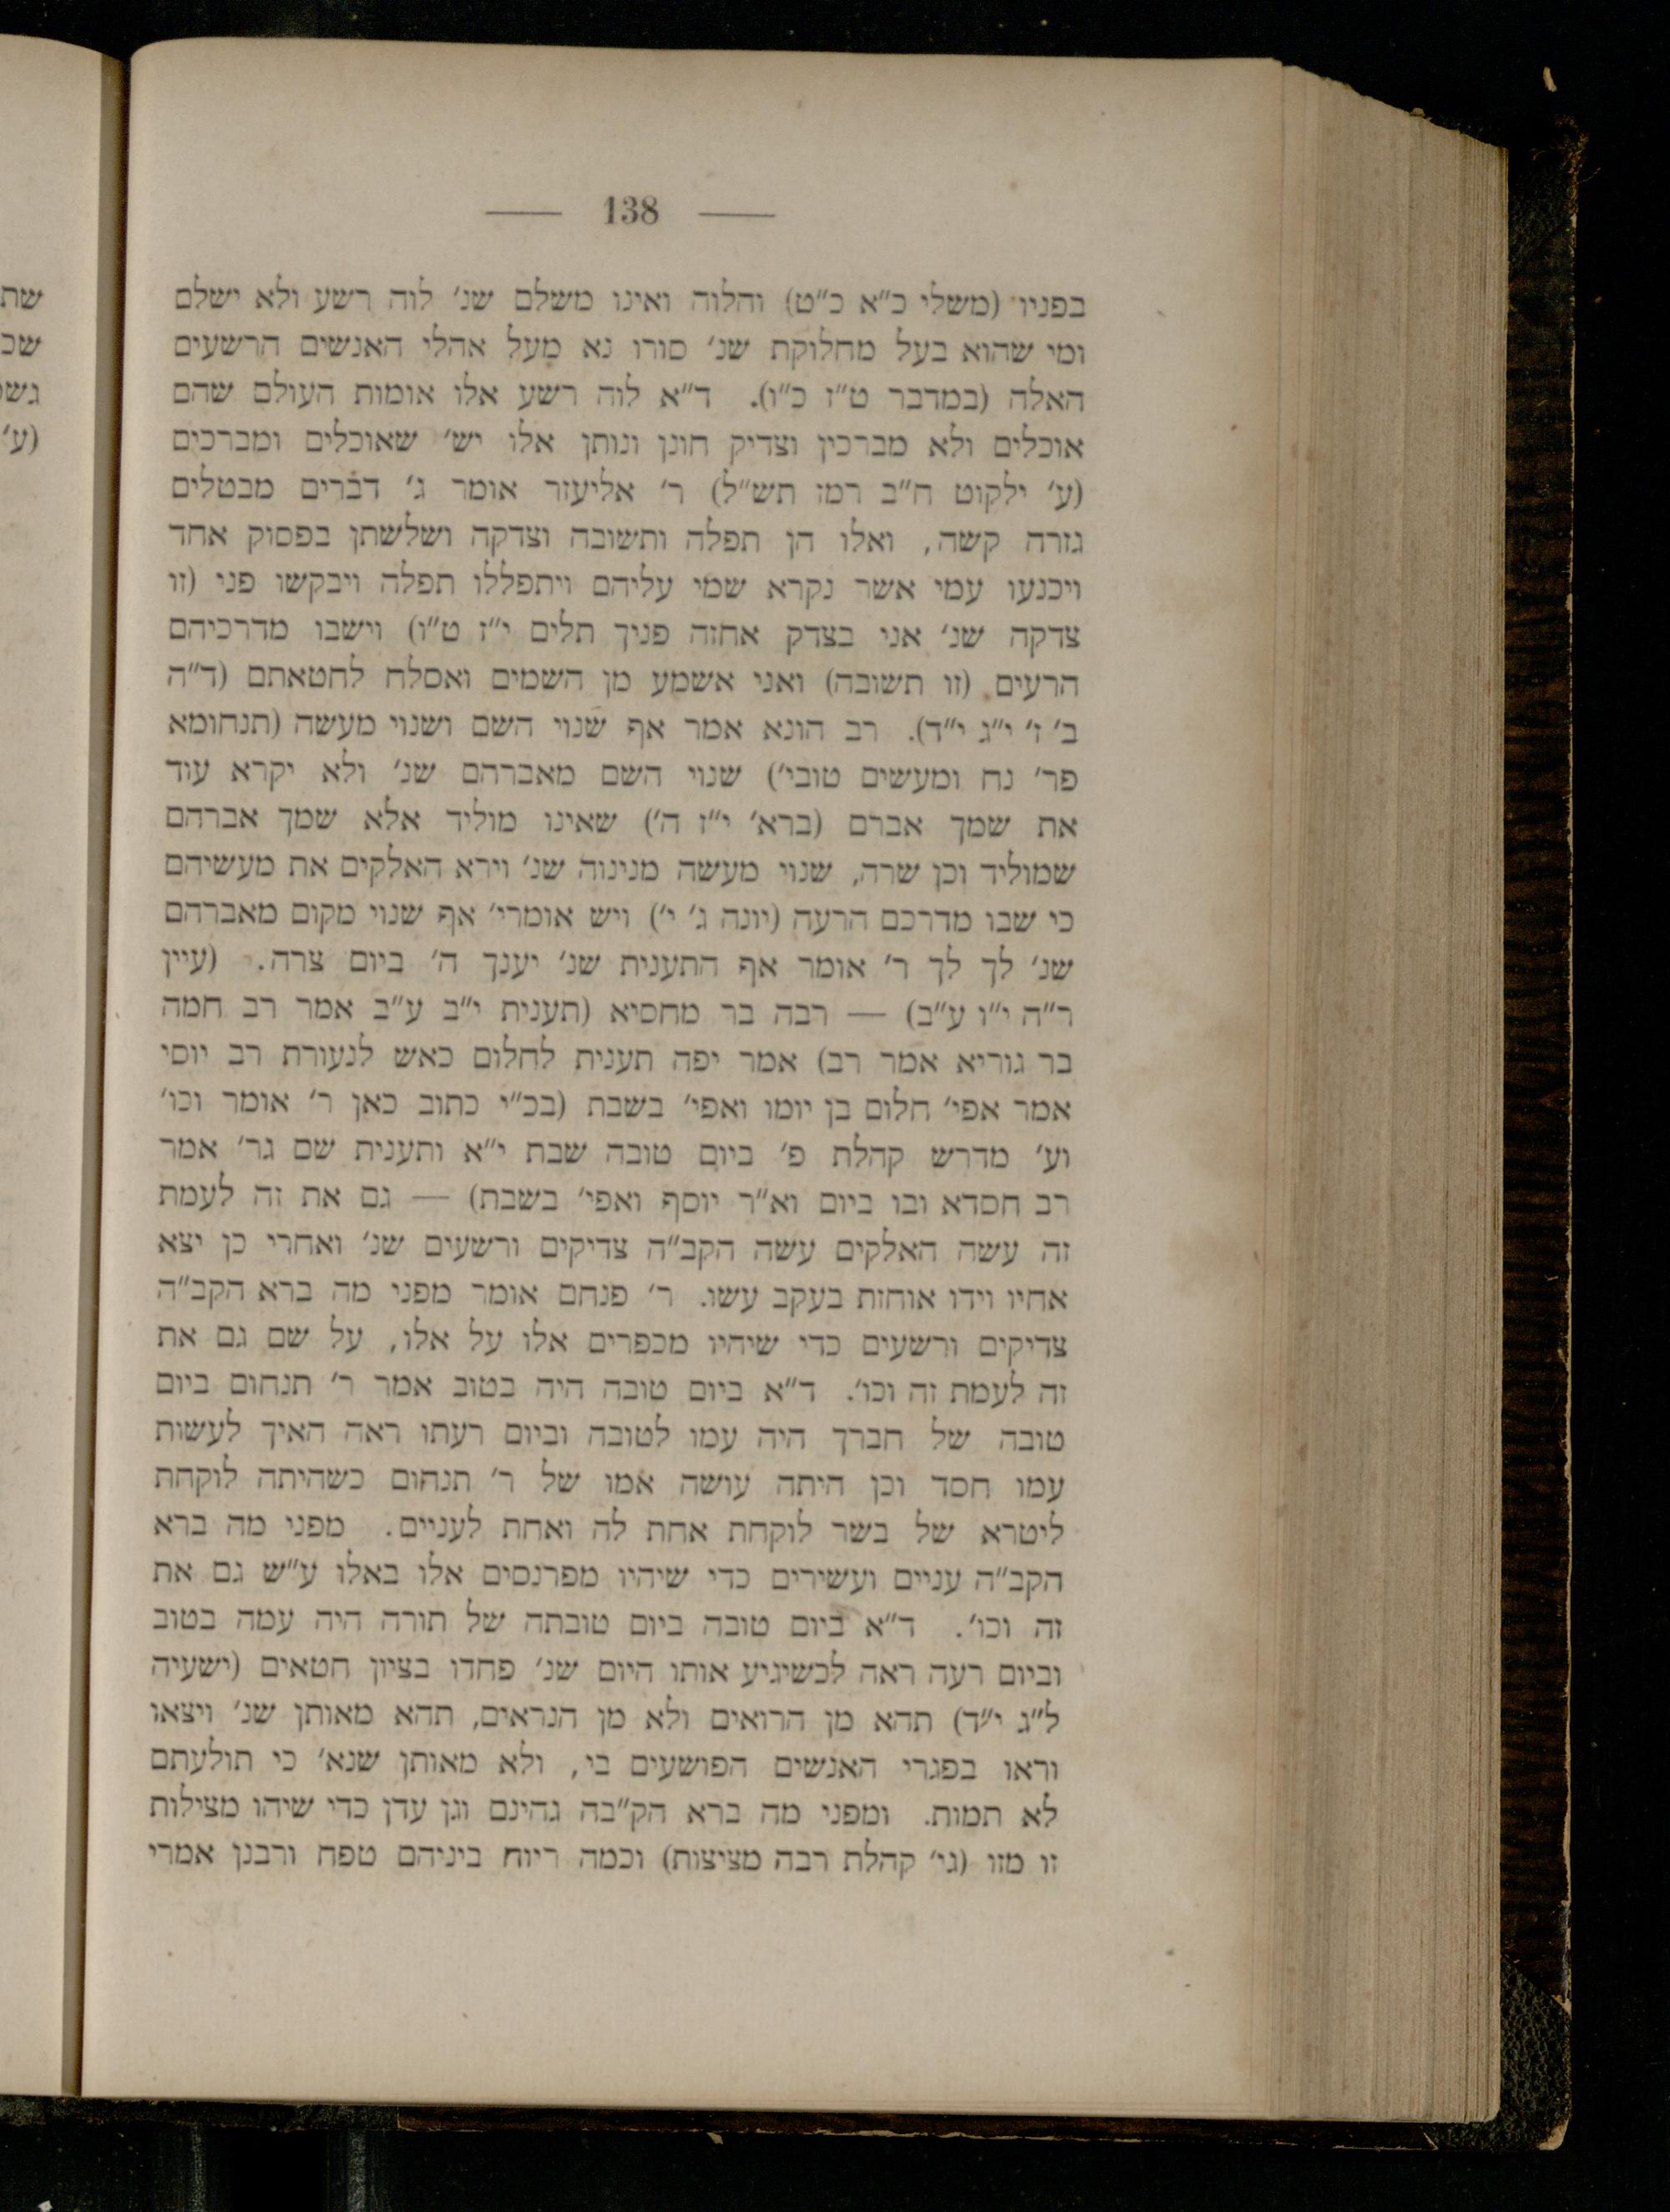 — 138 —
בפניו (משלי כ״א כ״ט) והלוה ואינו משלם שנ׳ לוה רשע ולא ישלם
ומי שהוא בעל מחלוקת שנ׳ סורו נא מעל אהלי האנשים הרשעים
האלה (במדבר ט״ז כ״ו). ד״א לוה רשע אלו אומות העולם שהם
אוכלים ולא מברכין וצדיק חונן ונותן אלו יש׳ שאוכלים ומברכים
(ע׳ ילקוט ח״ב רמז תש״ל) ר׳ אליעזר אומר ג׳ דברים מבטלים
גזרה קשה, ואלו הן תפלה ותשובה וצדקה ושלשתן בפסוק אחד
ויכנעו עמי אשר נקרא שמי עליהם ויתפללו תפלה ויבקשו פני (זו
צדקה שנ׳ אני בצדק אחזה פניך תלים י״ז ט״ו) וישבו מדרכיהם
הרעים (זו תשובה) ואני אשמע מן השמים ואסלח לחטאתם (ד״ה
ב׳ ז׳ י״ג י״ד). רב הונא אמר אף שנוי השם ושנוי מעשה (תנחומא
פר׳ נח ומעשים טובי׳) שנוי השם מאברהם שנ׳ ולא יקרא עוד
את שמך אברם (ברא׳ י״ז ה׳) שאינו מוליד אלא שמך אברהם
שמוליד וכן שרה, שנוי מעשה מנינוה שנ׳ וירא האלקים את מעשיהם
כי שבו מדרכם הרעה (יונה ג׳ י׳) ויש אומרי׳ אף שנוי מקום מאברהם
שנ׳ לך לך ר׳ אומר אף התענית שנ׳ יענך ה׳ ביום צרה. (עיין
ר״ה י״ו ע״ב) — רבה בר מחסיא (תענית י״ב ע״ב אמר רב חמה
בר גוריא אמר רב) אמר יפה תענית לחלום כאש לנעורת רב יוסי
אמר אפי׳ חלום בן יומו ואפי׳ בשבת (בכ״י כתוב כאן ר׳ אומר וכו׳
וע׳ מדרש קהלת פ׳ ביום טובה שבת י״א ותענית שם גר׳ אמר
רב חסדא ובו ביום וא״ר יוסף ואפי׳ בשבת) — גם את זה לעמת
זה עשה האלקים עשה הקב״ה צדיקים ורשעים שנ׳ ואחרי כן יצא
אחיו וידו אוחזת בעקב עשו. ר׳ פנחם אומר מפני מה ברא הקב״ה
צדיקים ורשעים כדי שיהיו מכפרים אלו על אלו, על שם גם את
זה לעמת זה וכו׳. ד״א ביום טובה היה בטוב אמר ר׳ תנחום ביום
טובה של חברך היה עמו לטובה וביום רעתו ראה האיך לעשות
עמו חסד וכן היתה עושה אמו של ר׳ תנחום כשהיתה לוקחת
ליטרא של בשר לוקחת אחת לה ואחת לעניים. מפני מה ברא
הקב״ה עניים ועשירים כדי שיהיו מפרנסים אלו באלו ע״ש גם את
זה וכו׳. ד״א ביום טובה ביום טובתה של תורה היה עמה בטוב
וביום רעה ראה לכשיגיע אותו היום שנ׳ פחדו בציון חטאים (ישעיה
ל״ג י״ד) תהא מן הרואים ולא מן הנראים, תהא מאותן שנ׳ ויצאו
וראו בפגרי האנשים הפושעים בי, ולא מאותן שנא׳ כי תולעתם
לא תמות. ומפני מה ברא הק״בה גהינם וגן עדן כדי שיהו מצילות
זו מזו (גי׳ קהלת רבה מציצות) וכמה ריוח ביניהם טפח ורבנן אמרי
שת
שכ
(ע׳